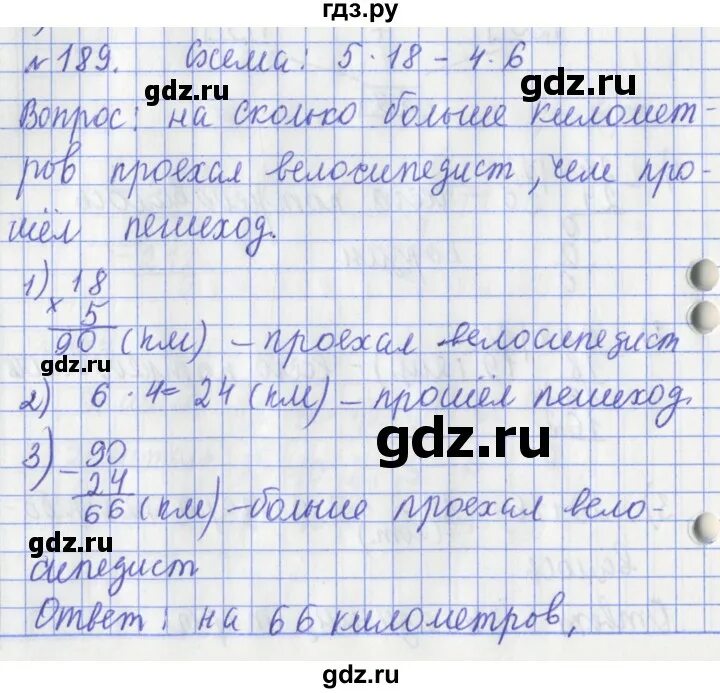 гдз.ру
№189. Схема: 5·18-4·6
gdz.ru gdz.ru
Вопрос: на сколько больше километ-
ров проехал велосипедист, чем про-
шёл пешеход.
1) 18
× 5
90 (км) – проехал велосипедист
gdz.ru
2) 6·4=24 (км) – прошёл пешеход.
gdz.ru
3) – 90
24
66 (км) – больше проехал вело-
gdz.ru gdz.ru
сипедист
Ответ: на 66 километров.
gdz.ru